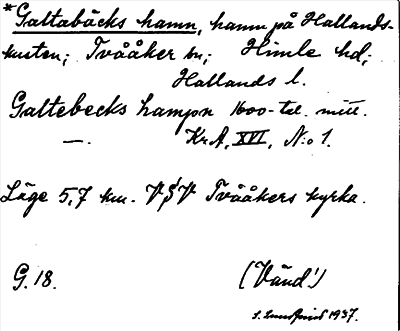 *Galtabäcks hamn, hamn på Hallands-
kusten; Tvååker sn; Himle hd;
Hallands l.
Galtebecks hampn 1600-tal. mitt.
—. KrA, XVI, N:o 1.
Läge 5,7 km. V§V Tvååkers kyrka.
G. 18. (Vänd!)
1937.